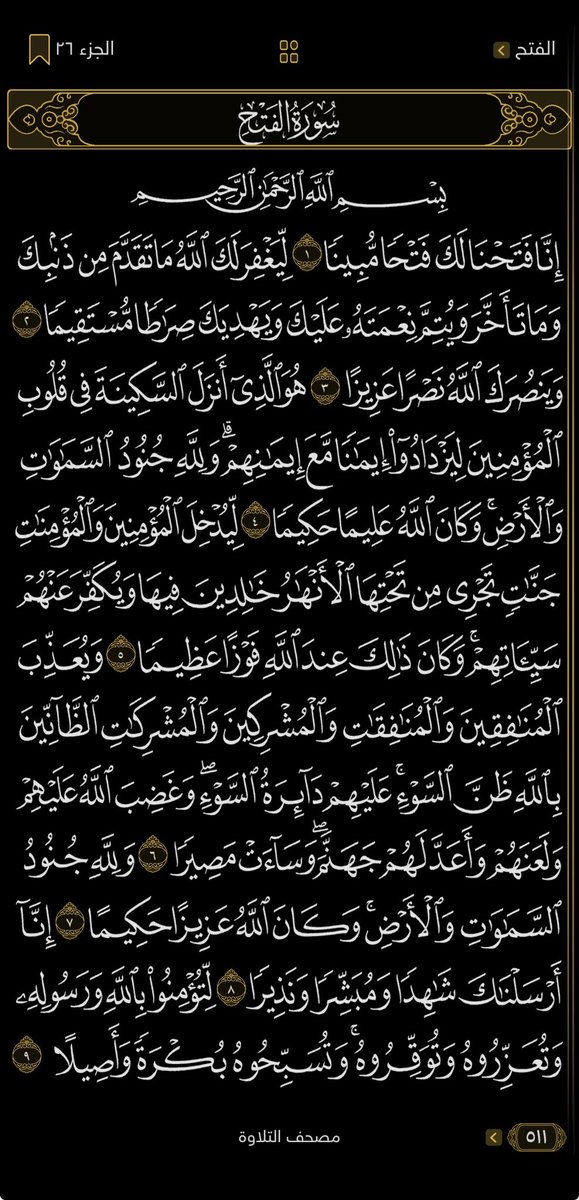 الفتح
الجزء ٢٦
سُورَةُ الفَتْحِ
بِسْمِ ٱللَّهِ ٱلرَّحْمَٰنِ ٱلرَّحِيمِ
إِنَّا فَتَحْنَا لَكَ فَتْحًا مُّبِينًا ١ لِّيَغْفِرَ لَكَ ٱللَّهُ مَا تَقَدَّمَ مِن ذَنۢبِكَ
وَمَا تَأَخَّرَ وَيُتِمَّ نِعْمَتَهُۥ عَلَيْكَ وَيَهْدِيَكَ صِرَٰطًا مُّسْتَقِيمًا ٢
وَيَنصُرَكَ ٱللَّهُ نَصْرًا عَزِيزًا ٣ هُوَ ٱلَّذِىٓ أَنزَلَ ٱلسَّكِينَةَ فِى قُلُوبِ
ٱلْمُؤْمِنِينَ لِيَزْدَادُوٓا۟ إِيمَٰنًا مَّعَ إِيمَٰنِهِمْ ۗ وَلِلَّهِ جُنُودُ ٱلسَّمَٰوَٰتِ
وَٱلْأَرْضِ ۚ وَكَانَ ٱللَّهُ عَلِيمًا حَكِيمًا ٤ لِّيُدْخِلَ ٱلْمُؤْمِنِينَ وَٱلْمُؤْمِنَٰتِ
جَنَّٰتٍ تَجْرِى مِن تَحْتِهَا ٱلْأَنْهَٰرُ خَٰلِدِينَ فِيهَا وَيُكَفِّرَ عَنْهُمْ
سَيِّـَٔاتِهِمْ ۚ وَكَانَ ذَٰلِكَ عِندَ ٱللَّهِ فَوْزًا عَظِيمًا ٥ وَيُعَذِّبَ
ٱلْمُنَٰفِقِينَ وَٱلْمُنَٰفِقَٰتِ وَٱلْمُشْرِكِينَ وَٱلْمُشْرِكَٰتِ ٱلظَّآنِّينَ
بِٱللَّهِ ظَنَّ ٱلسَّوْءِ ۚ عَلَيْهِمْ دَآئِرَةُ ٱلسَّوْءِ ۖ وَغَضِبَ ٱللَّهُ عَلَيْهِمْ
وَلَعَنَهُمْ وَأَعَدَّ لَهُمْ جَهَنَّمَ ۖ وَسَآءَتْ مَصِيرًا ٦ وَلِلَّهِ جُنُودُ
ٱلسَّمَٰوَٰتِ وَٱلْأَرْضِ ۚ وَكَانَ ٱللَّهُ عَزِيزًا حَكِيمًا ٧ إِنَّآ
أَرْسَلْنَٰكَ شَٰهِدًا وَمُبَشِّرًا وَنَذِيرًا ٨ لِّتُؤْمِنُوا۟ بِٱللَّهِ وَرَسُولِهِۦ
وَتُعَزِّرُوهُ وَتُوَقِّرُوهُ ۚ وَتُسَبِّحُوهُ بُكْرَةً وَأَصِيلًا ٩
٥١١
مصحف التلاوة